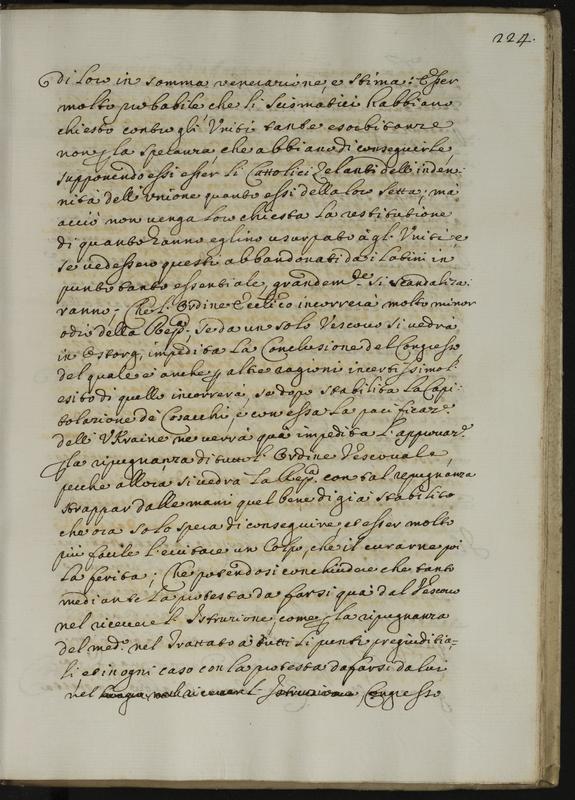 224.
di loro in somma venerazione, e stima: Esser
molto probabile che li Scismatici habbiano
chiesto contro gli Uniti tante esorbitanze
non p la speranza che abbiano di conseguirle
supponendo essi esser li Cattolici Zelanti dell'inden
nità dell'Unione quanto essi della loro Setta; ma
acciò non venga loro chiesta la restitutione
di quanto hanno eglino usurpato à gl'Uniti e
se vedessero questi abbandonati da i Latini in
punto tanto essentiale, grandem.te si scandaliza
ranno. Che l'Ordine Ecc.lico incorrerà molto minor
odio della Rep.ca se da un solo Vescovo si vedrà
in Ostorg, impedita la Conclusione del Congresso
del quale è anche p altre ragioni incertissimo l'
esito di quello incorrerà, se dopo stabilita la Capi
tolazione de Cosacchi, e con essa la pacificaz.e
dell'Ukraine ne verrà quà impedita l'approvaz.e
p la ripugnanza di tutto l'Ordine Vescovale
perche allora si vedrà la Rep.ca con tal repugnanza
strappar dalle mani quel bene di già stabilito
che ora solo spera di conseguire et esser molto
più facile l'evitare un Colpo, che il curarne poi
la ferita; Che potendosi conchiudere che tanto
mediante la protesta da farsi quà dal Vescovo
nel ricevere l'Istruzione, come p la ripugnanza
del med.o nel Trattato à tutti li punti pregiuditia-
li et in ogni caso con la protesta da farsi da lui
nel Congresso